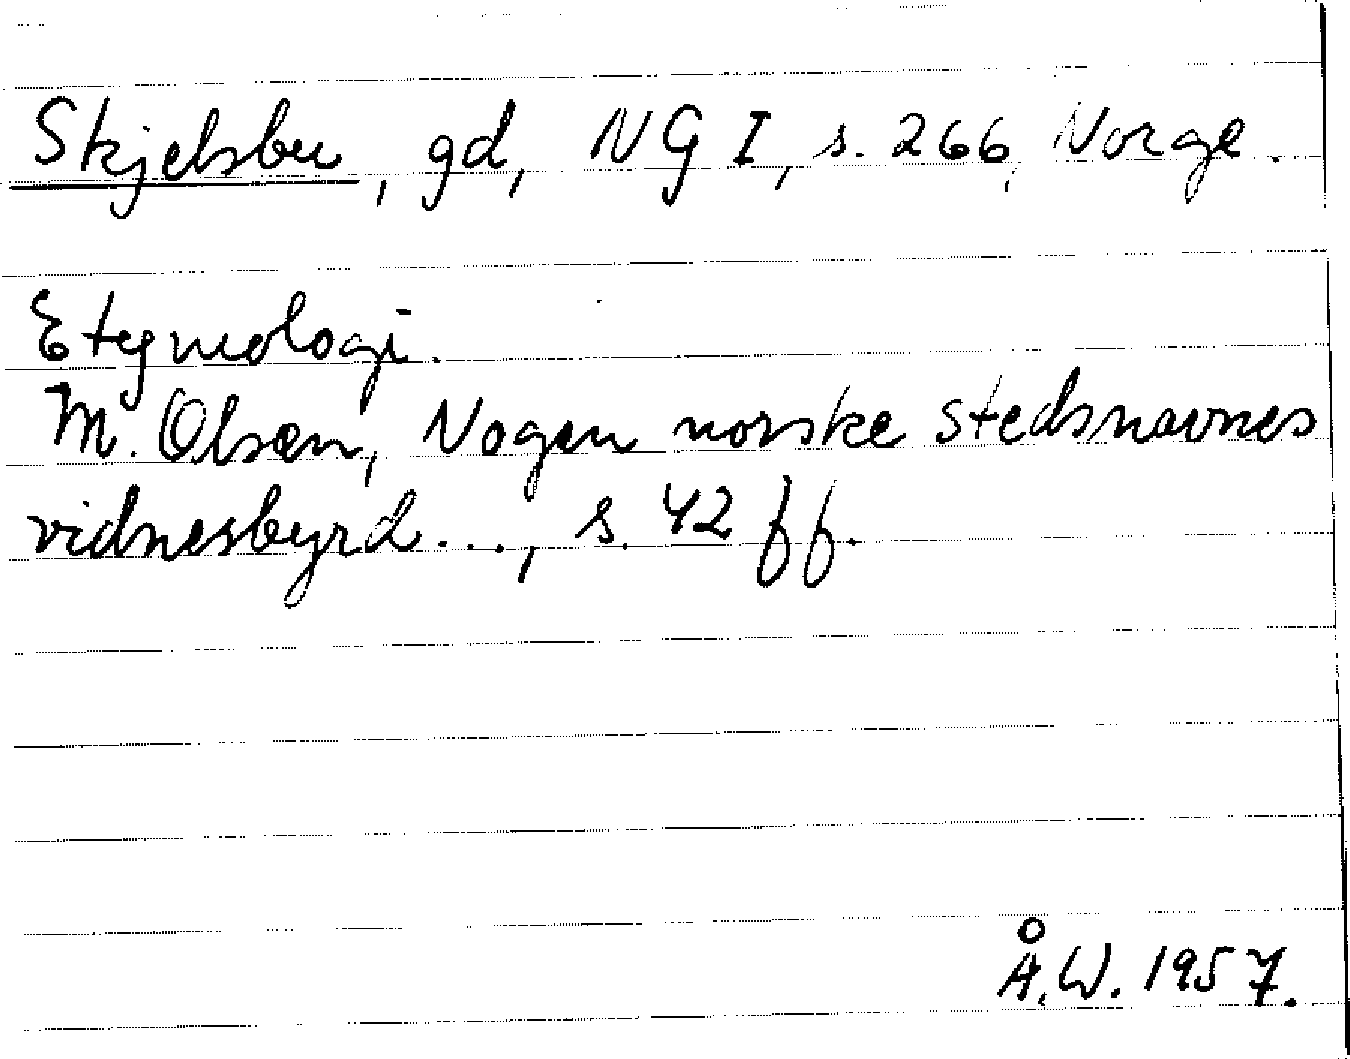 Skjelsbu, gd, NG I, s. 266, Norge.
Etymologi.
M. Olsen, Nogen norske stedsnavnes
vidnesbyrd..., s. 42 ff.
Å.W. 1957.